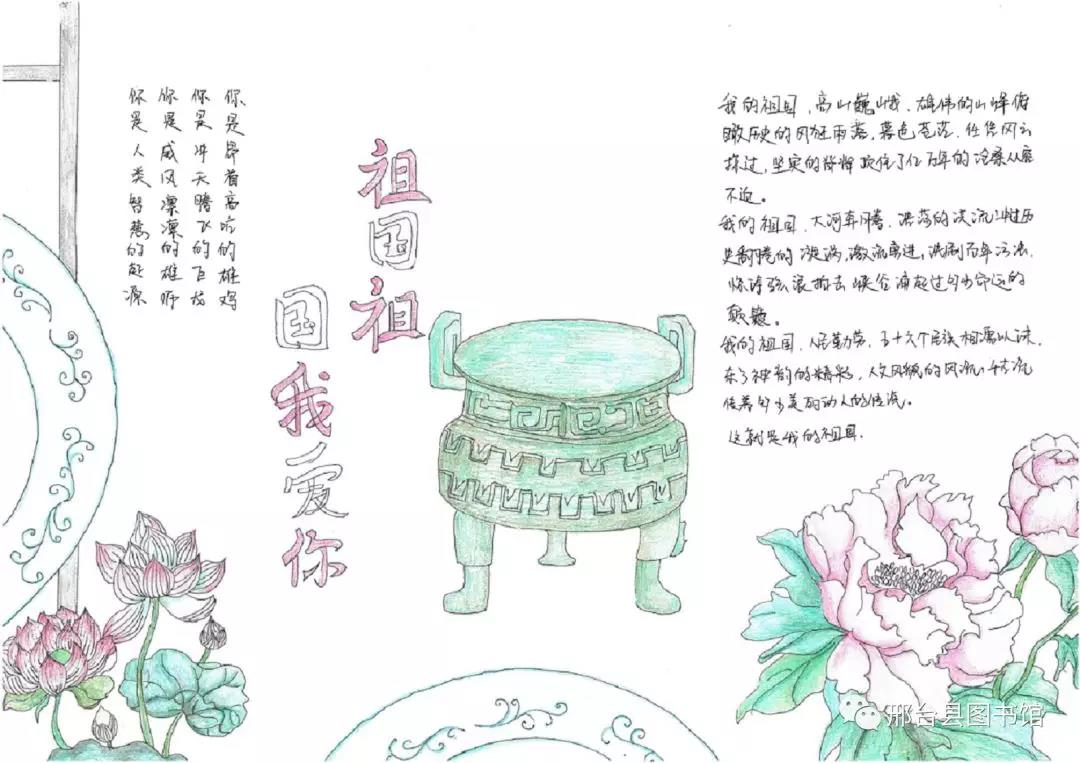 你是昂着高吭的雄鸡
你是冲天腾飞的巨龙
你是威风凛凛的雄狮
你是人类智慧的起源
祖国祖
国我爱你
我的祖国，高山巍峨，雄伟的山峰俯
瞰历史的风狂雨落，暮色苍茫，任凭风云
掠过，坚实的脊背顶住了亿万年的沧桑从容
不迫。
我的祖国，大河奔腾，浩荡的洪流冲过历
史翻腾的漩涡，激流勇进，洗刷百年污浊，
惊涛骇浪拍击峡谷涌起过多少命运的
颠簸。
我的祖国，人民勤劳，五十六个民族相濡以沫，
东方神韵的精彩，人文风貌的风流，千古流
传着多少美丽动人的传说。
这就是我的祖国.
邢台县图书馆